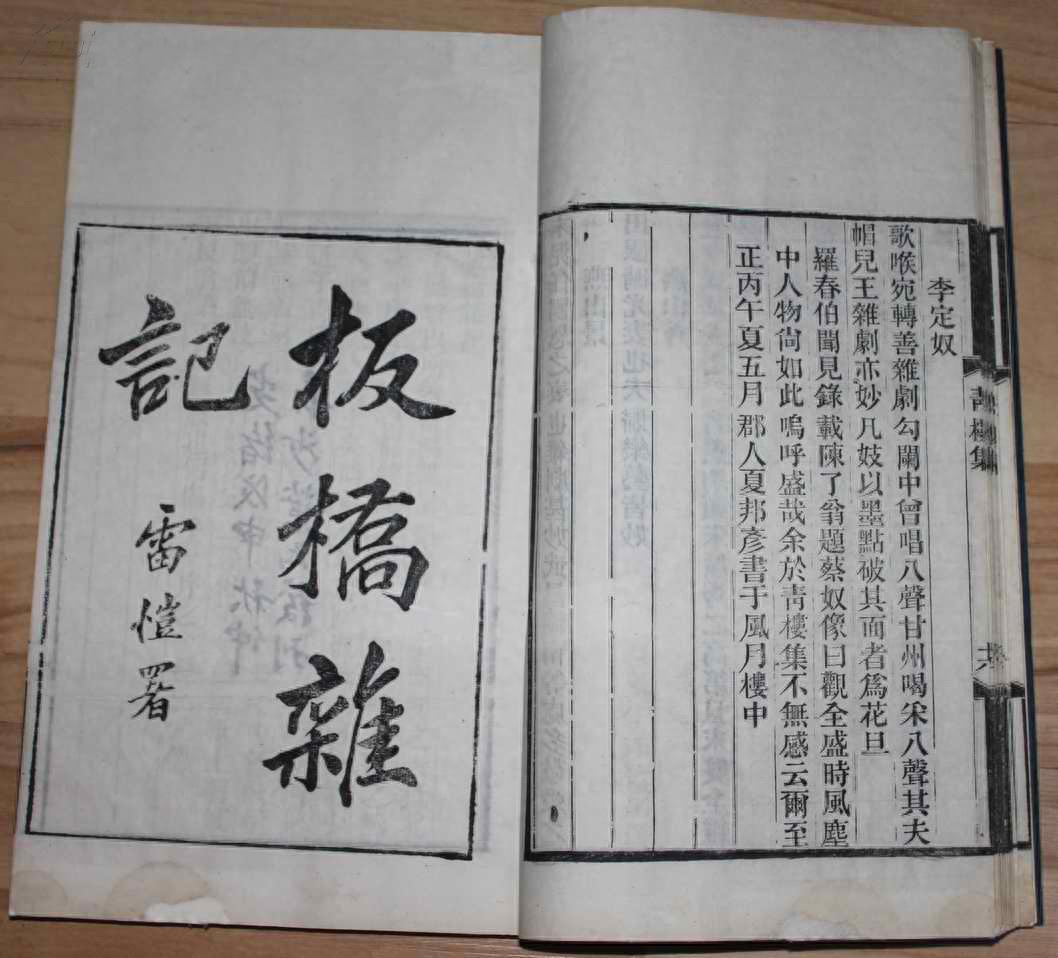 李定奴
歌喉宛轉善雜劇勾闌中曾唱八聲甘州喝采八聲其夫
帽兒王雜劇亦妙凡妓以墨點破其面者爲花旦
羅春伯聞見錄載陳了翁題蔡奴像曰觀全盛時風塵
中人物尙如此嗚呼盛哉余於靑樓集不無感云爾至
正丙午夏五月郡人夏邦彥書于風月樓中
靑樓集
板橋雜
記
雷愷署